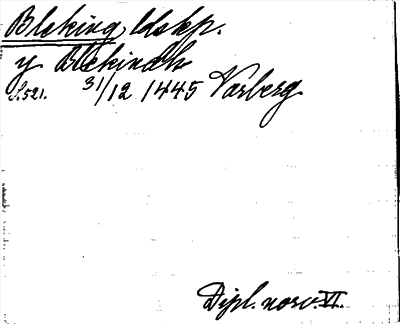 Bleking, ldskp.
y Blekindh
S. 521. 31/12 1445 Varberg
Dipl. norv. VI.